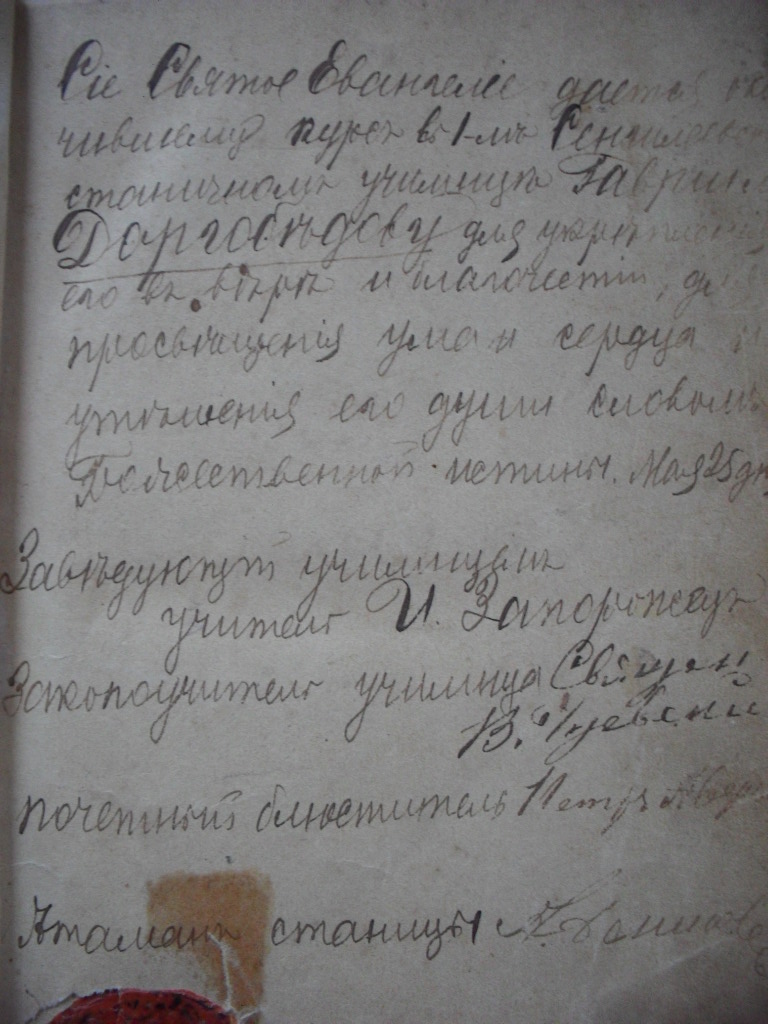 Сіе Святое Евангеліе дается
чившему курсъ въ 1-мъ
станичномъ училищѣ Гавріил
Доргобѣдову для укрѣпленія
его въ вѣрѣ и благочестіи, для
просвѣщенія ума и сердца и
утѣшенія его души словомъ
Божественной истины. Мая 25 дн
Завѣдующій училищемъ
учитель И. Запорожецъ
Законоучитель училища Священ
В.
почетный блюститель Петръ
Атаманъ станицы